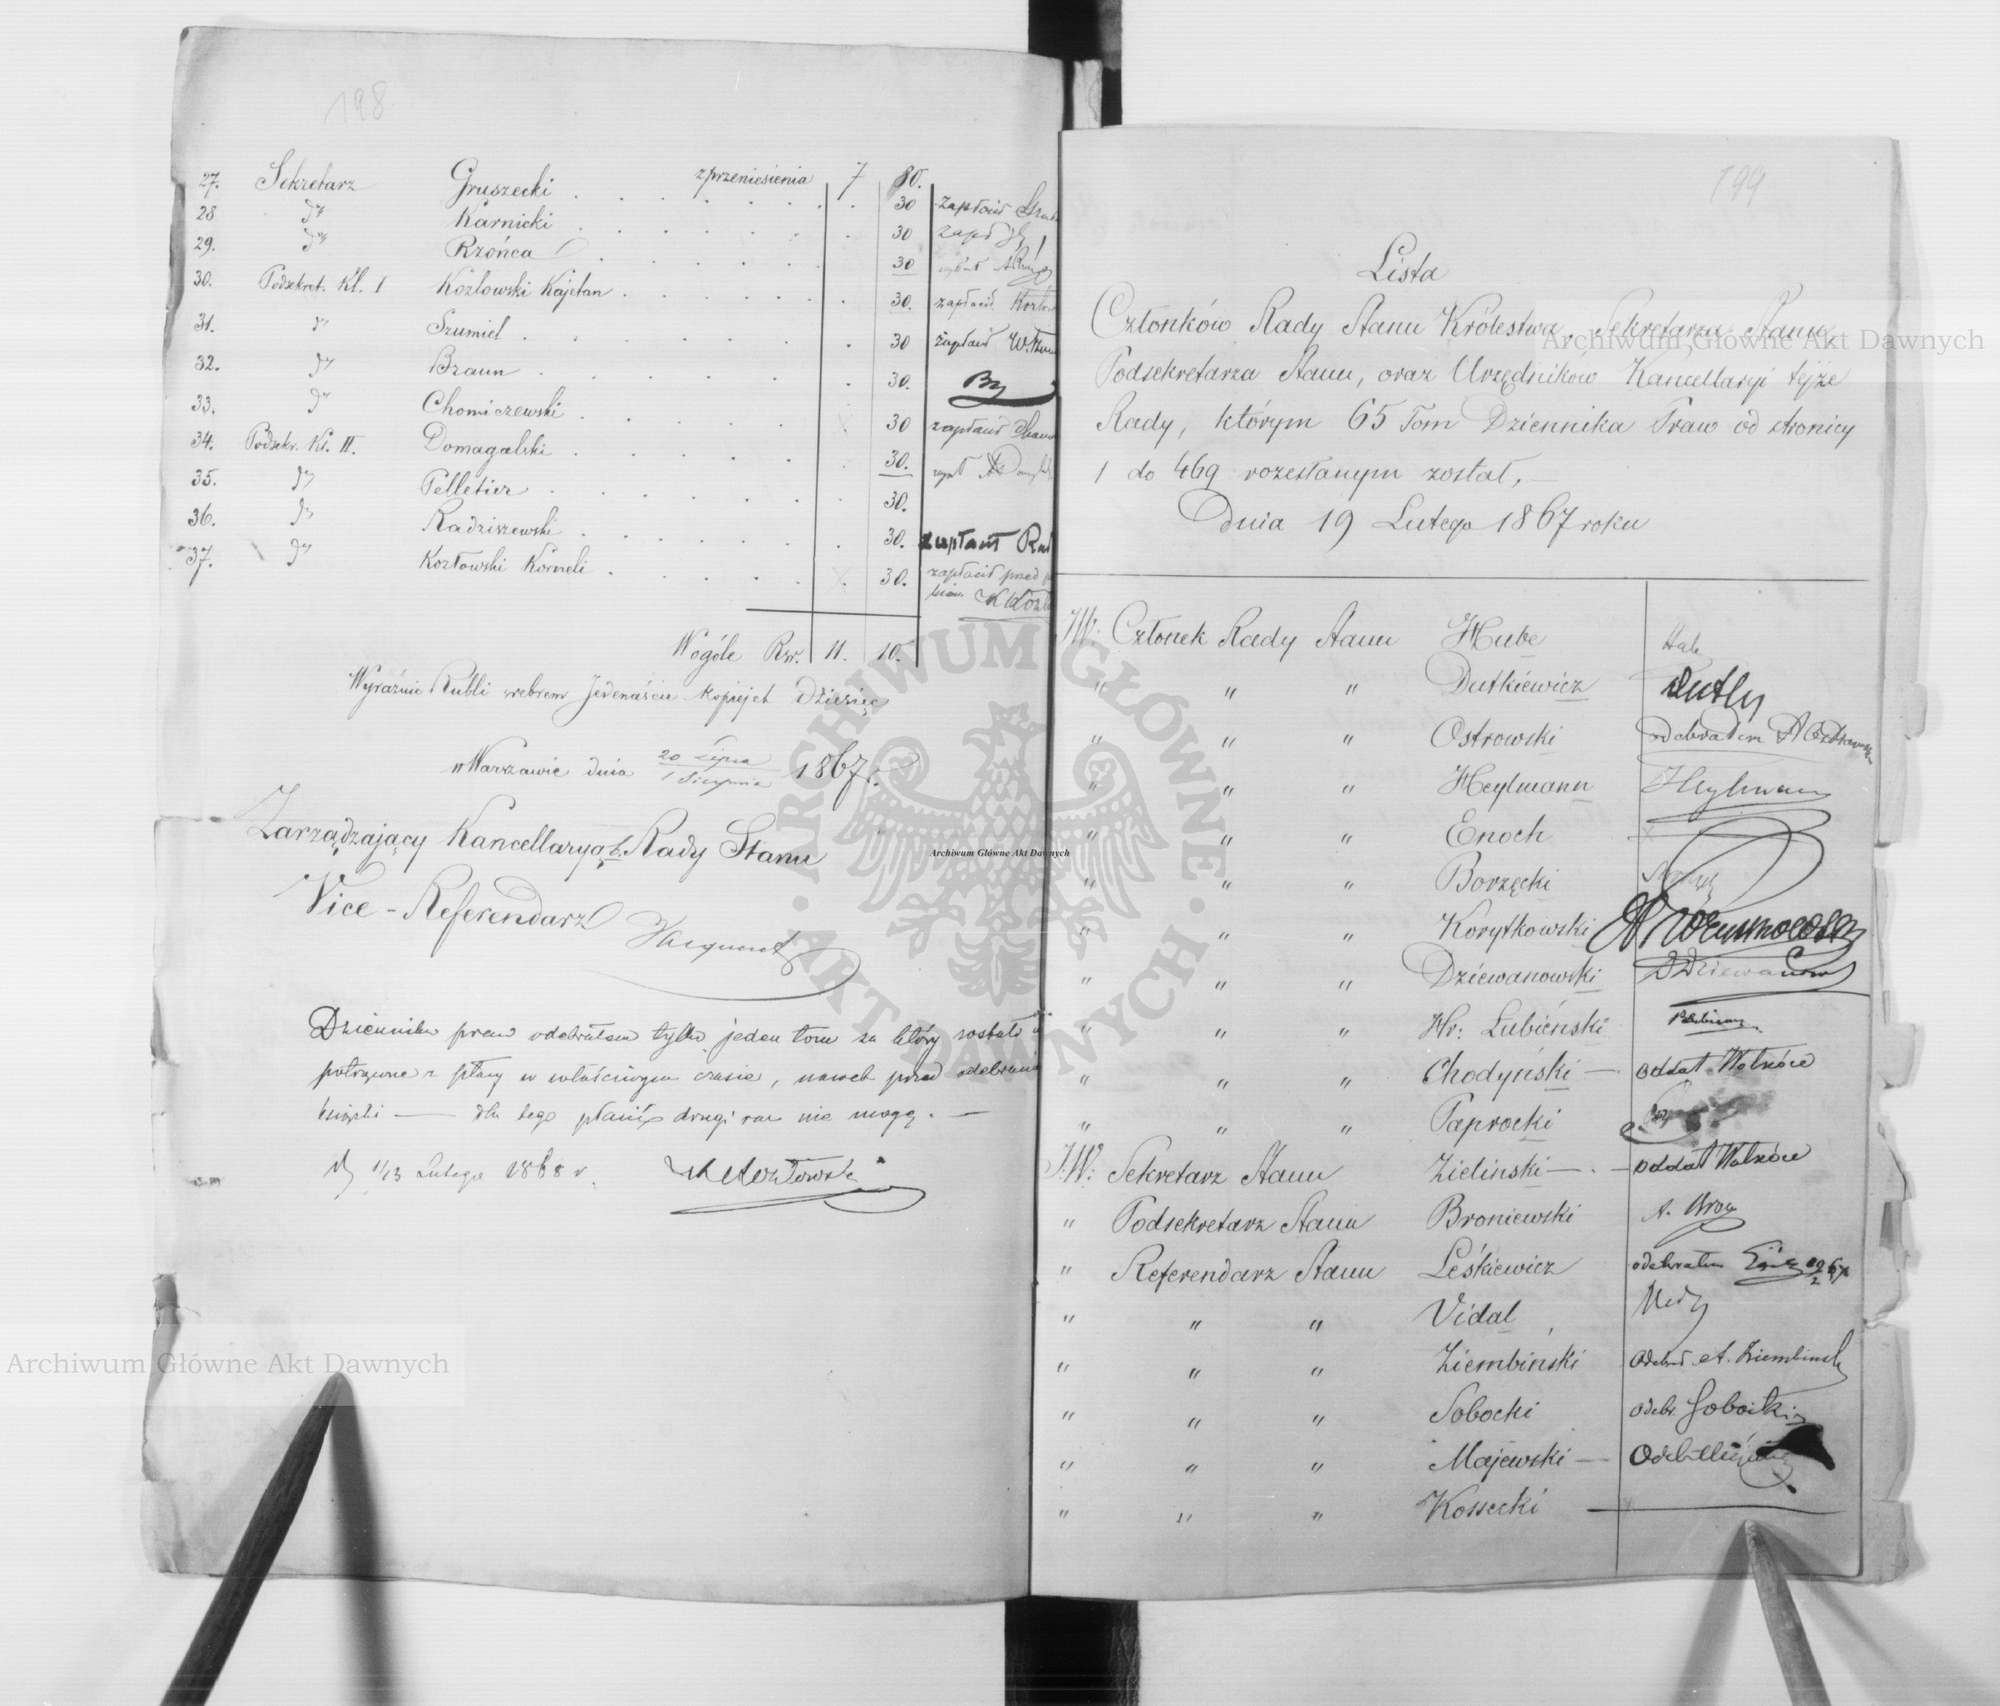 198
z przeniesienia 7 80.
27. Sekretarz Gruszecki 30 zapłacił
28 dº Karnicki 30
29. dº Rzońca 30
30. Podsekret. Kl. I Kozłowski Kajetan 30. zapłacił
31. dº Szumiel 30 zapłacił
32. dº Braun 30.
33. dº Chomiczewski 30 zapłacił
34. Podsekr. Kl. II. Domagalski 30.
35. dº Pelletier 30.
36. dº Radziszewski 30. zapłacił Rad
37. dº Kozłowski Korneli 30. zapłacił przed
Wogóle Rsr. 11. 10.
Wyraźnie Rubli srebrem Jedenaście kopiejek dziesięć
w Warszawie dnia 20 Lipca / 1 Sierpnia 1867 r.
Zarządzający Kancellaryą b. Rady Stanu
Vice-Referendarz
Dziennika praw odebrałem tylko jeden tom za który
z płacy w właściwym czasie, nawet przed
książki — dla tego płacić drugi raz nie mogę. —
1/13 Lutego 1868 r. Kozłowski
199
Lista
Członków Rady Stanu Królestwa, Sekretarza Stanu,
Podsekretarza Stanu, oraz Urzędników Kancellaryi tejże
Rady, którym 65 Tom Dziennika Praw od stronicy
1 do 469 rozesłanym został, —
Dnia 19 Lutego 1867 roku
JW: Członek Rady Stanu Hube Hube
" " " Dutkiewicz
" " " Ostrowski odebrałem
" " " Heylmann Heylman
" " " Enoch
" " " Borzęcki
" " " Korytkowski
" " " Dziewanowski
" " " Hr: Łubieński
" " " Chodyński — oddał Woźnica
" " " Paprocki
J.W: Sekretarz Stanu Zieliński — oddał Woźnica
" Podsekretarz Stanu Broniewski
" Referendarz Stanu Leśkiewicz odebrałem
" " " Vidal
" " " Ziembiński odebrał A. Ziembiński
" " " Sobocki odebr. Sobocki
" " " Majewski —
" " " Kossecki
Archiwum Główne Akt Dawnych
Archiwum Główne Akt Dawnych
Archiwum Główne Akt Dawnych
ARCHIWUM GŁÓWNE AKT DAWNYCH